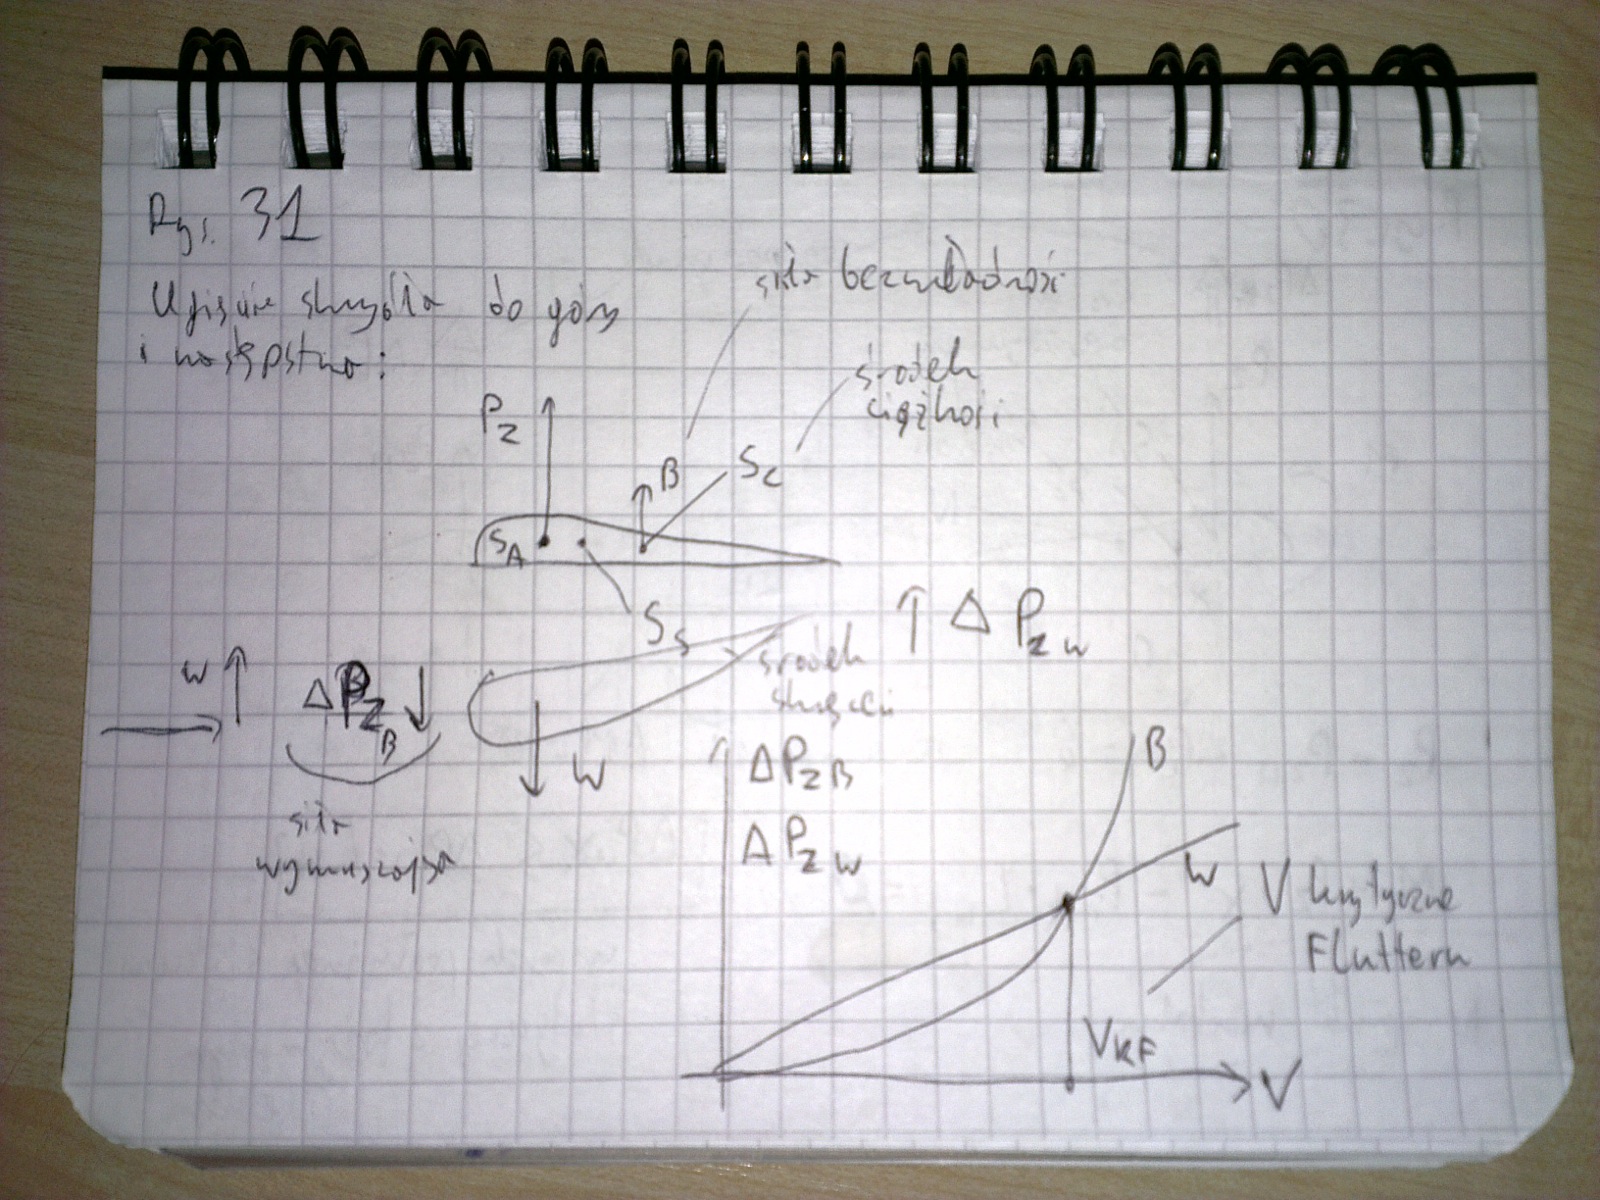 Rys. 31
Ugięcie skrzydła do góry
i następstwa:
siła bezwładności
środek
ciężkości
Pz
B
Sc
SA
Ss
środek
skręceń
↑ Δ Pzw
w
Δ PzB ↓
siła
wymuszająca
w
ΔPzB
ΔPzw
B
w
V krytyczne
Flutteru
VKF
V